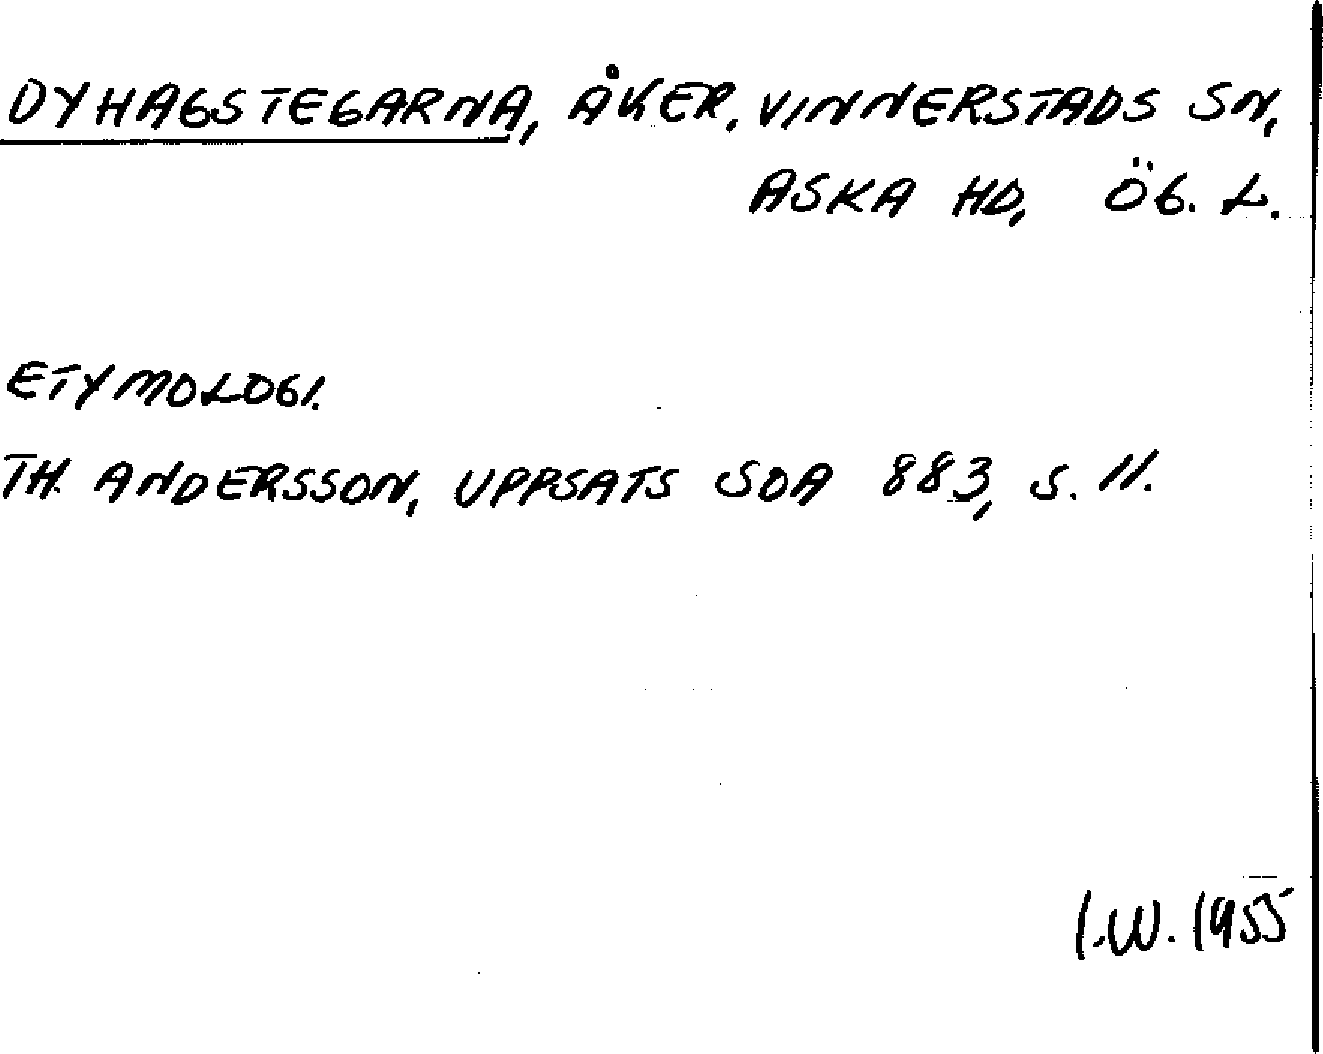 DYHAGSTEGARNA, ÅKER, VINNERSTADS SN,
ASKA HD, ÖG. L.
ETYMOLOGI.
TH. ANDERSSON, UPPSATS SOA 883, S. 11.
I.W. 1955